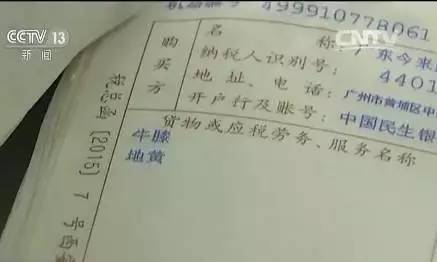 CCTV 13
新闻
CNTV
机器编号 499910778061
购买方
名 称: 广东今来
纳税人识别号: 4401
地址、电话: 广州市黄埔区中
开户行及账号: 中国民生银
货物或应税劳务、服务名称
牛膝
地黄
税总函〔2015〕7号